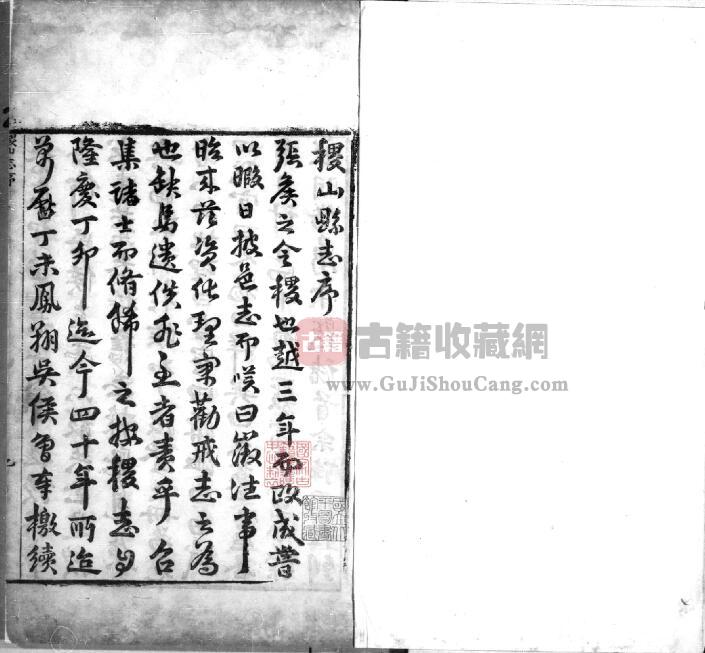 稷山縣志序
張矦之令稷也越三年而政成嘗
以暇日披邑志而嘆曰徵往事
昭來茲資化理宗勸戒志之為
也缺焉遺佚非主者責乎合
集諸士而脩餙之按稷志自
隆慶丁卯迄今四十年所迨
萬曆丁未鳳翔吳侯曾奉檄續
古籍收藏網
www.GuJiShouCang.com
古籍